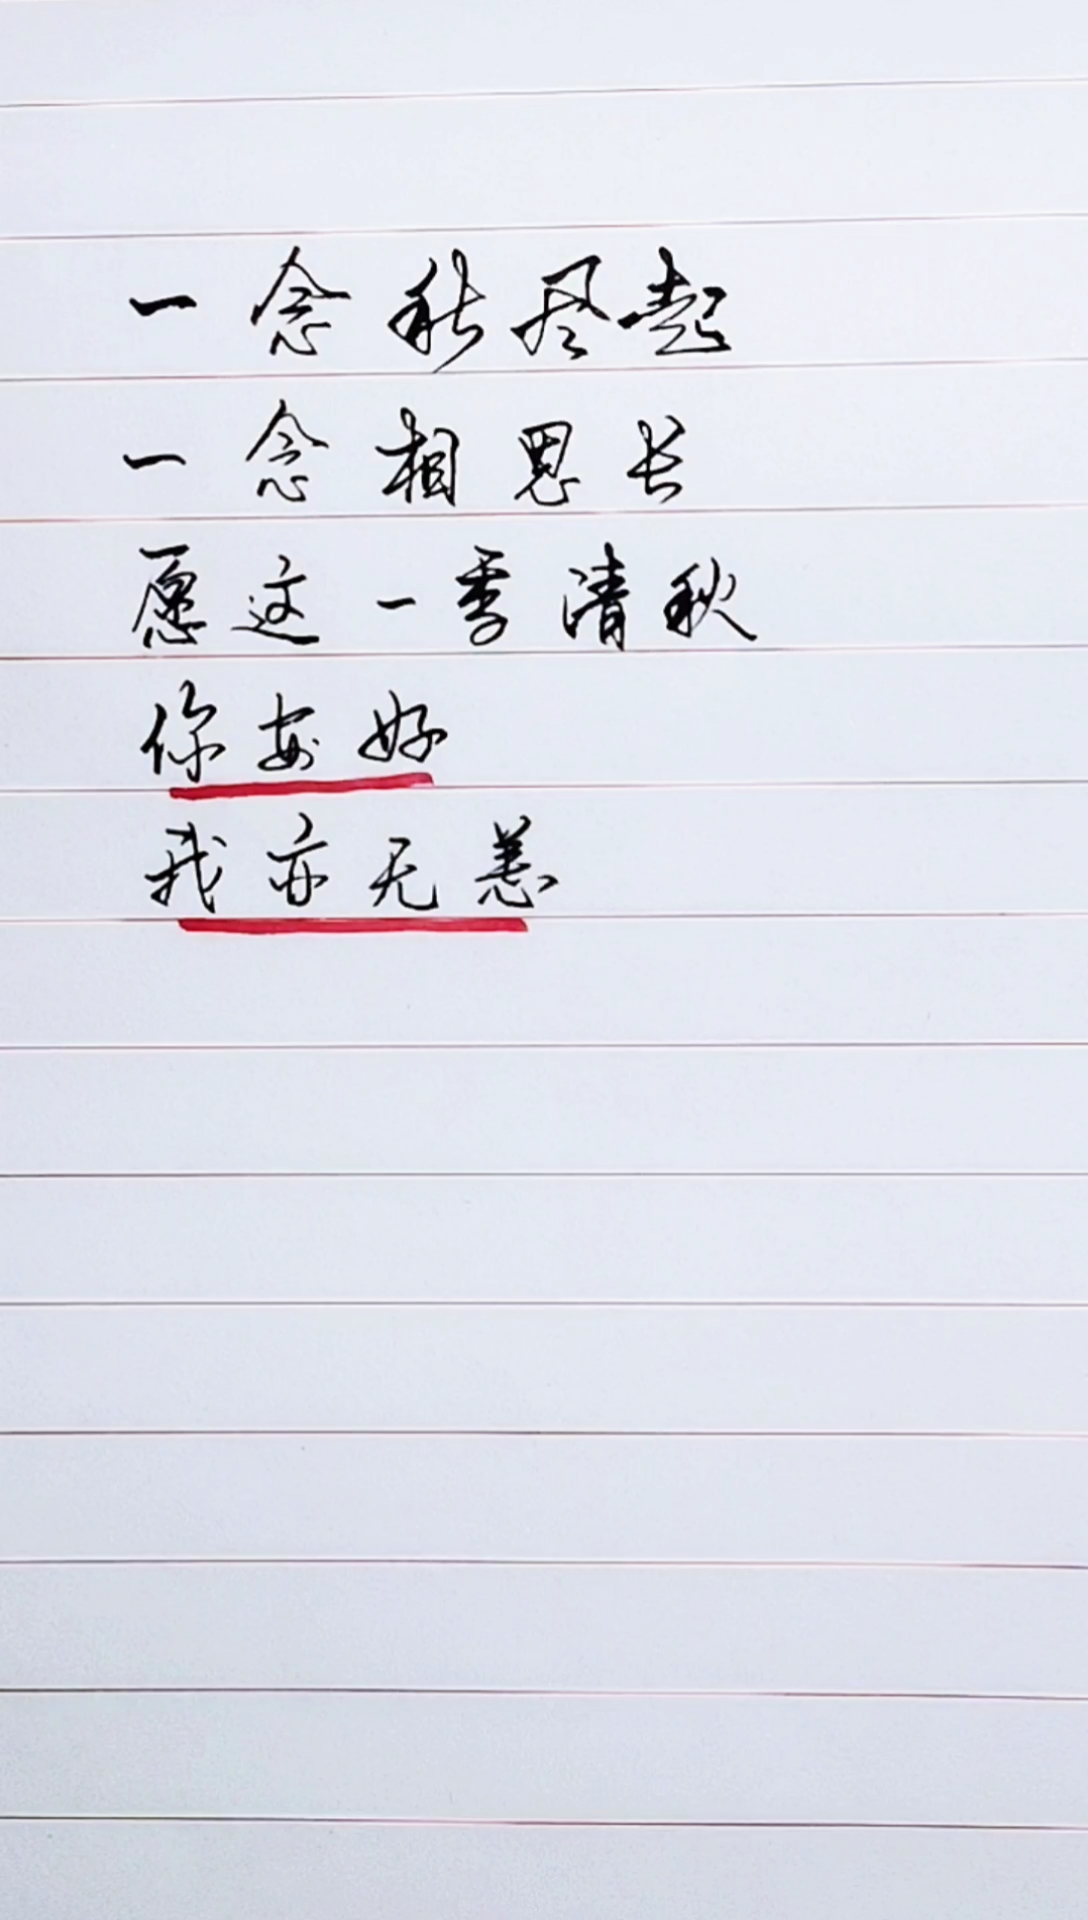 一念秋风起
一念相思长
愿这一季清秋
你安好
我亦无恙